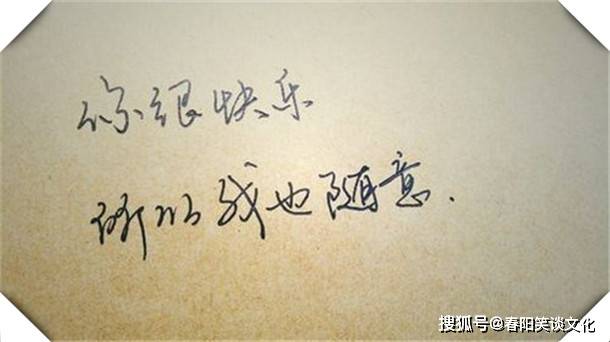 你很快乐
所以我也随意.
搜狐号@春阳笑谈文化